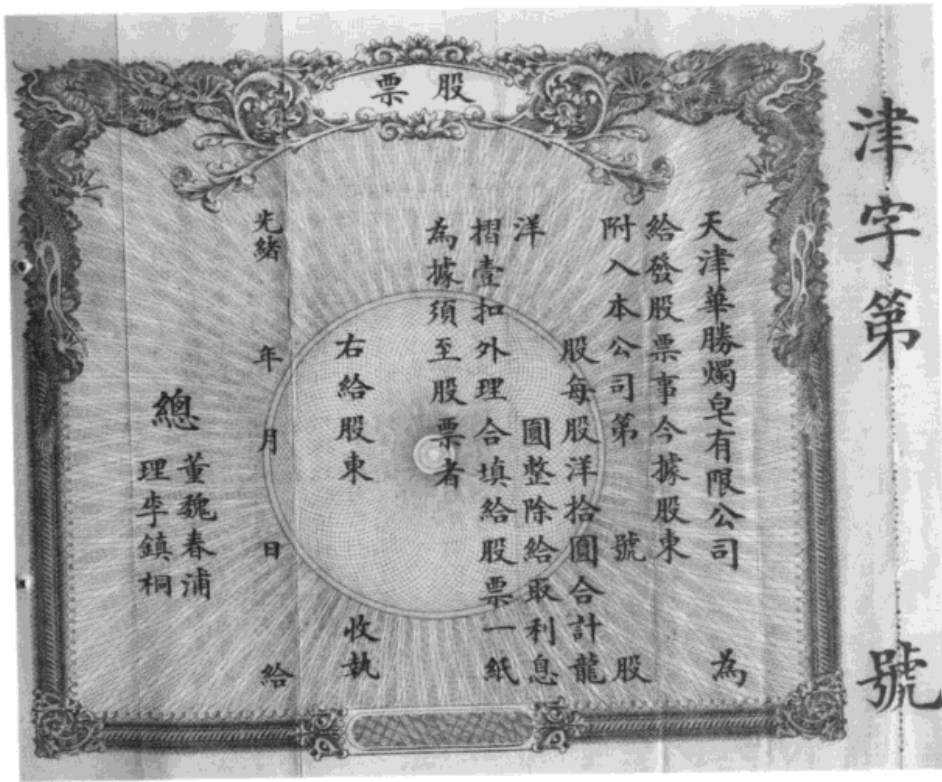 津字第 號
股票
天津華勝燭皂有限公司 為
給發股票事今據股東
附入本公司第 號 股
股每股洋拾圓合計龍
洋 圓整除給取利息
摺壹扣外理合填給股票一紙
為據須至股票者
右給股東 收執
光緒 年 月 日 給
總董魏春浦
理李鎮桐